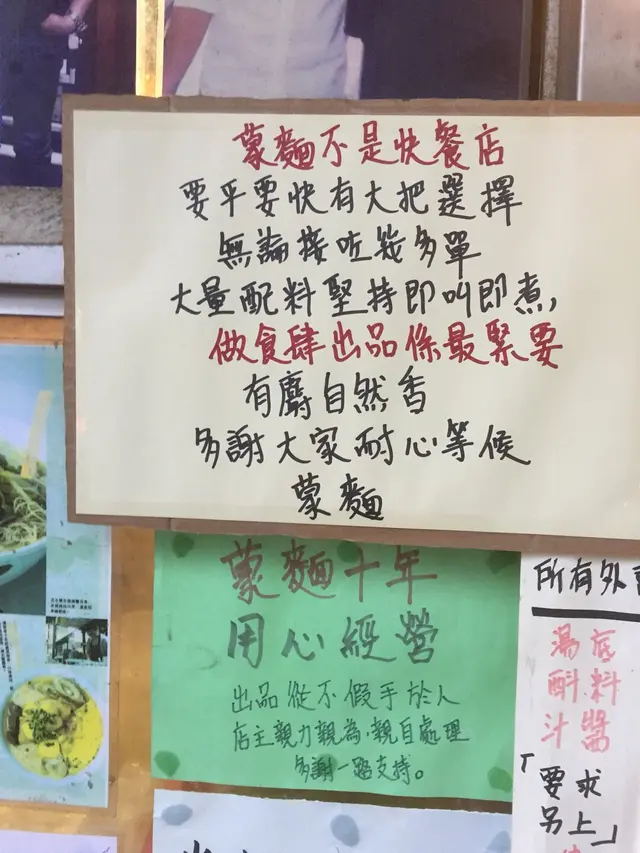 蒙麵不是快餐店
要平要快有大把選擇
無論接咗幾多單
大量配料堅持即叫即煮,
做食肆出品係最緊要
有麝自然香
多謝大家耐心等候
蒙麵
蒙麵十年
用心經營
出品從不假手於人
店主親力親為,親自處理
多謝一路支持。
所有外
湯底
酙料
汁醬
「要求
另上」